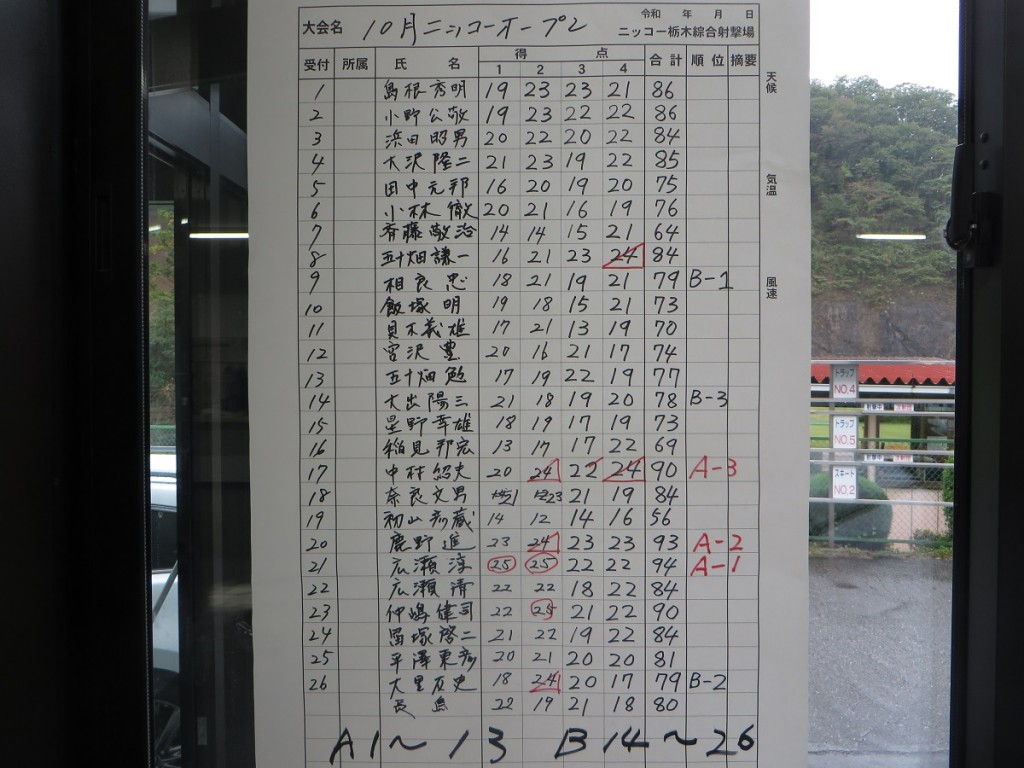 大会名 10月ニッコーオープン 令和 年 月 日
ニッコー栃木綜合射撃場
受付 所属 氏 名 得 点 合計 順位 摘要
1 2 3 4
1 島根秀明 19 23 23 21 86
2 小野公敬 19 23 22 22 86
3 浜田昭男 20 22 20 22 84
4 大沢隆二 21 23 19 22 85
5 田中元邦 16 20 19 20 75
6 小林 徹 20 21 16 19 76
7 斉藤敬治 14 14 15 21 64
8 五十畑謙一 16 21 23 24 84
9 相良 忠 18 21 19 21 79 B-1
10 飯塚 明 19 18 15 21 73
11 貝木義雄 17 21 13 19 70
12 宮沢 豊 20 16 21 17 74
13 五十畑 勉 17 19 22 19 77
14 大出陽三 21 18 19 20 78 B-3
15 星野幸雄 18 19 17 19 73
16 稲見邦宏 13 17 17 22 69
17 中村紹夫 20 24 22 24 90 A-3
18 奈良文男 21 23 21 19 84
19 初山彦蔵 14 12 14 16 56
20 鹿野 進 23 24 23 23 93 A-2
21 広瀬 淳 25 25 22 22 94 A-1
22 広瀬 清 22 22 18 22 84
23 仲嶋健司 22 25 21 22 90
24 冨塚啓二 21 22 19 22 84
25 平澤東彦 20 21 20 20 81
26 大里友史 18 24 20 17 79 B-2
長島 22 19 21 18 80
A1〜13 B14〜26
天候
気温
風速
トラップ
NO.4
トラップ
NO.5
スキート
NO.2